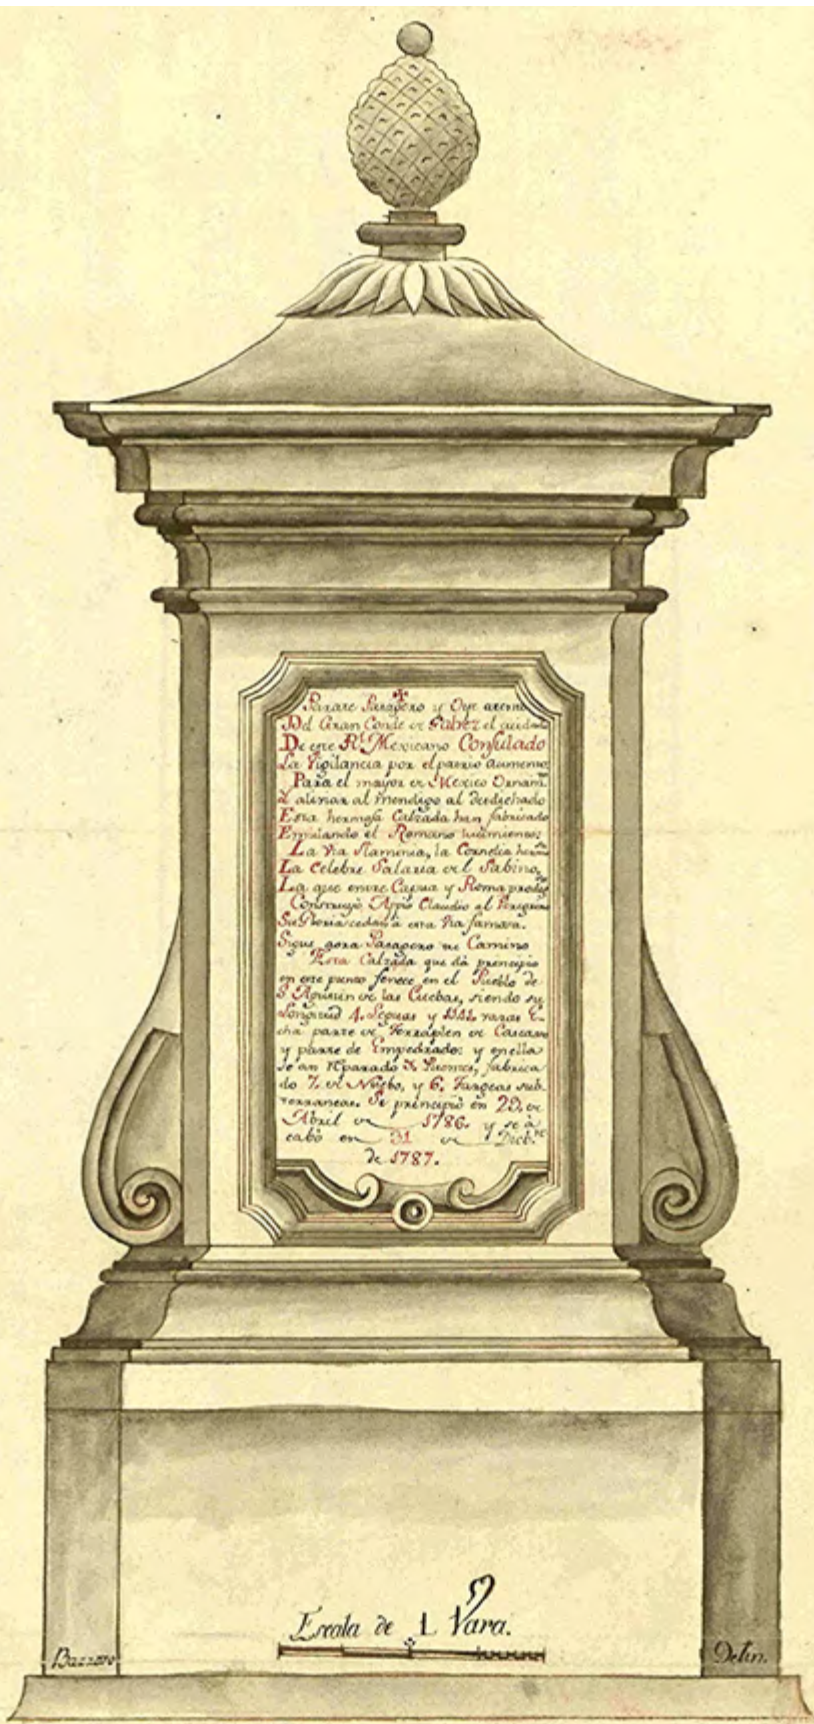 Parare Pasagero y Oye atento
Del Gran Conde de Galvez el cuidado
De este Rl. Mexicano Consulado
La Vigilancia por el patrio aumento
Para el mayor de Mexico Ornamto.
al mendigo al desdichado
Esta hermosa Calzada han fabricado
Emulando el Romano lucimiento:
La Via Flaminia, la Cornelia
La Celebre Salaria del Sabino,
La que entre Capua y Roma
Construyó Appio Claudio al Peregrino
Su Gloria cedan à esta Via famosa.
Sigue gora Pasagero tu Camino
Esta Calzada que dà principio
en este punto fenece en el Pueblo de
S Agustin de las Cuebas, siendo su
Longitud 4. Leguas y varas
cha parte de Terraplen de Cascaxo
y parte de Empedrado: y en ella
se an reparado Puentes, fabrica
do 7. de Nuebo, y 6. Targeas sub
terraneas. Se principió en 29. de
Abril de 1786. y se à
cabò en 31 de Dicbre.
de 1787.
Escala de 1 Vara.
Bazzoro Delin.